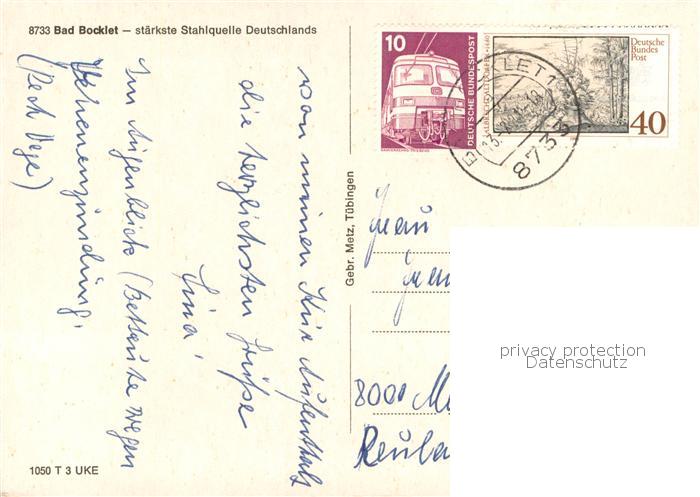 8733 Bad Bocklet — stärkste Stahlquelle Deutschlands
von meinen Kur Aufenthalt
die herzlichsten Grüße
Lina!
Im Augenblick (Bettruhe wegen
Venenenzündung.
(Pech Vege)
1050 T 3 UKE
Gebr. Metz, Tübingen
10
DEUTSCHE BUNDESPOST
Deutsche
Bundes
Post
40
8733
Frau
8000
privacy protection
Datenschutz